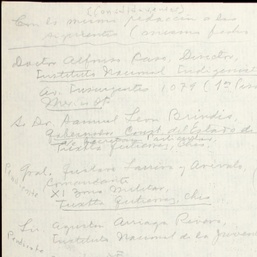 (confidencial)
Con la misma redacción a los
siguientes (misma fecha
Doctor Alfonso Caso, Director,
Instituto Nacional Indigenista
Av. Insurgentes 1079 (1er piso
S. Dr. Samuel León Brindis,
Gobernador Const. del Estado de
Tuxtla Gutiérrez, Chis.
Gral.
Pendiente
Comandante
XI Zona Militar,
Tuxtla Gutiérrez, Chis
Lic. Agustín Arriaga Rivera,
Pendiente
Instituto Nacional de la Juventud